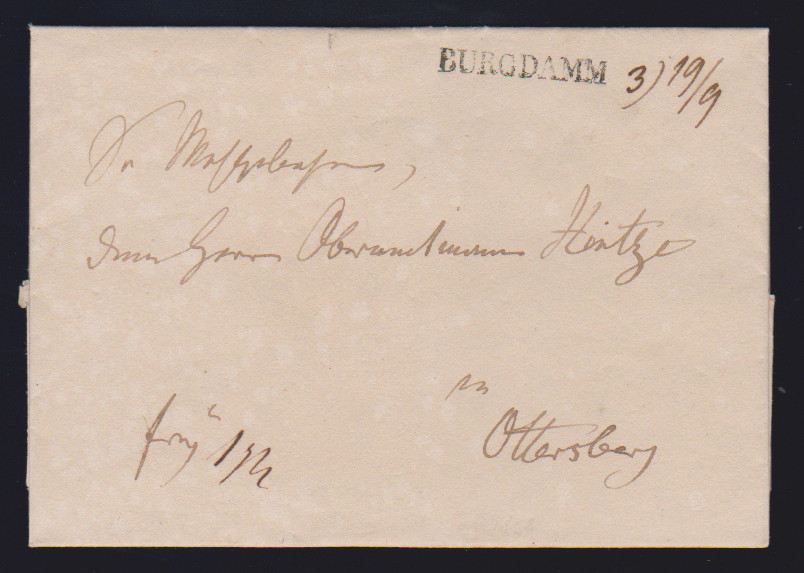 BURGDAMM 3) 19/9
Sr Wohlgebohren,
dem Herrn Oberamtmann Hintze
in
Ottersberg